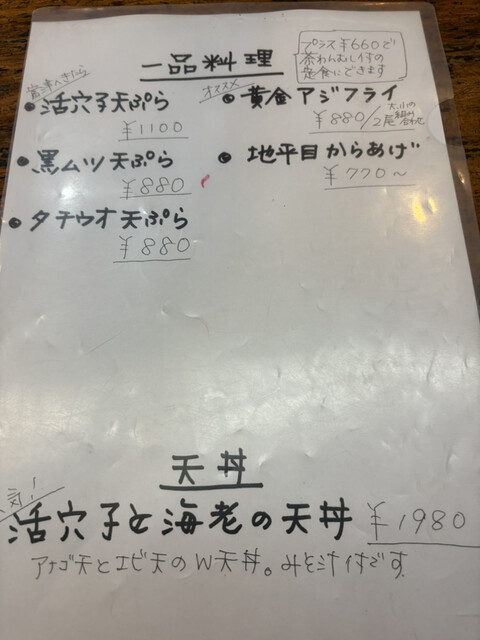 一品料理
プラス¥660で
茶わんむし付の
定食にできます
富津へきたら
●活穴子天ぷら
¥1100
●黒ムツ天ぷら
¥880
●タチウオ天ぷら
¥880
オススメ
●黄金アジフライ
¥880/2尾
大小の
組み
合わせ
●地平目からあげ
¥770～
天丼
人気!
活穴子と海老の天丼 ¥1980
アナゴ天とエビ天のW天丼。みそ汁付です